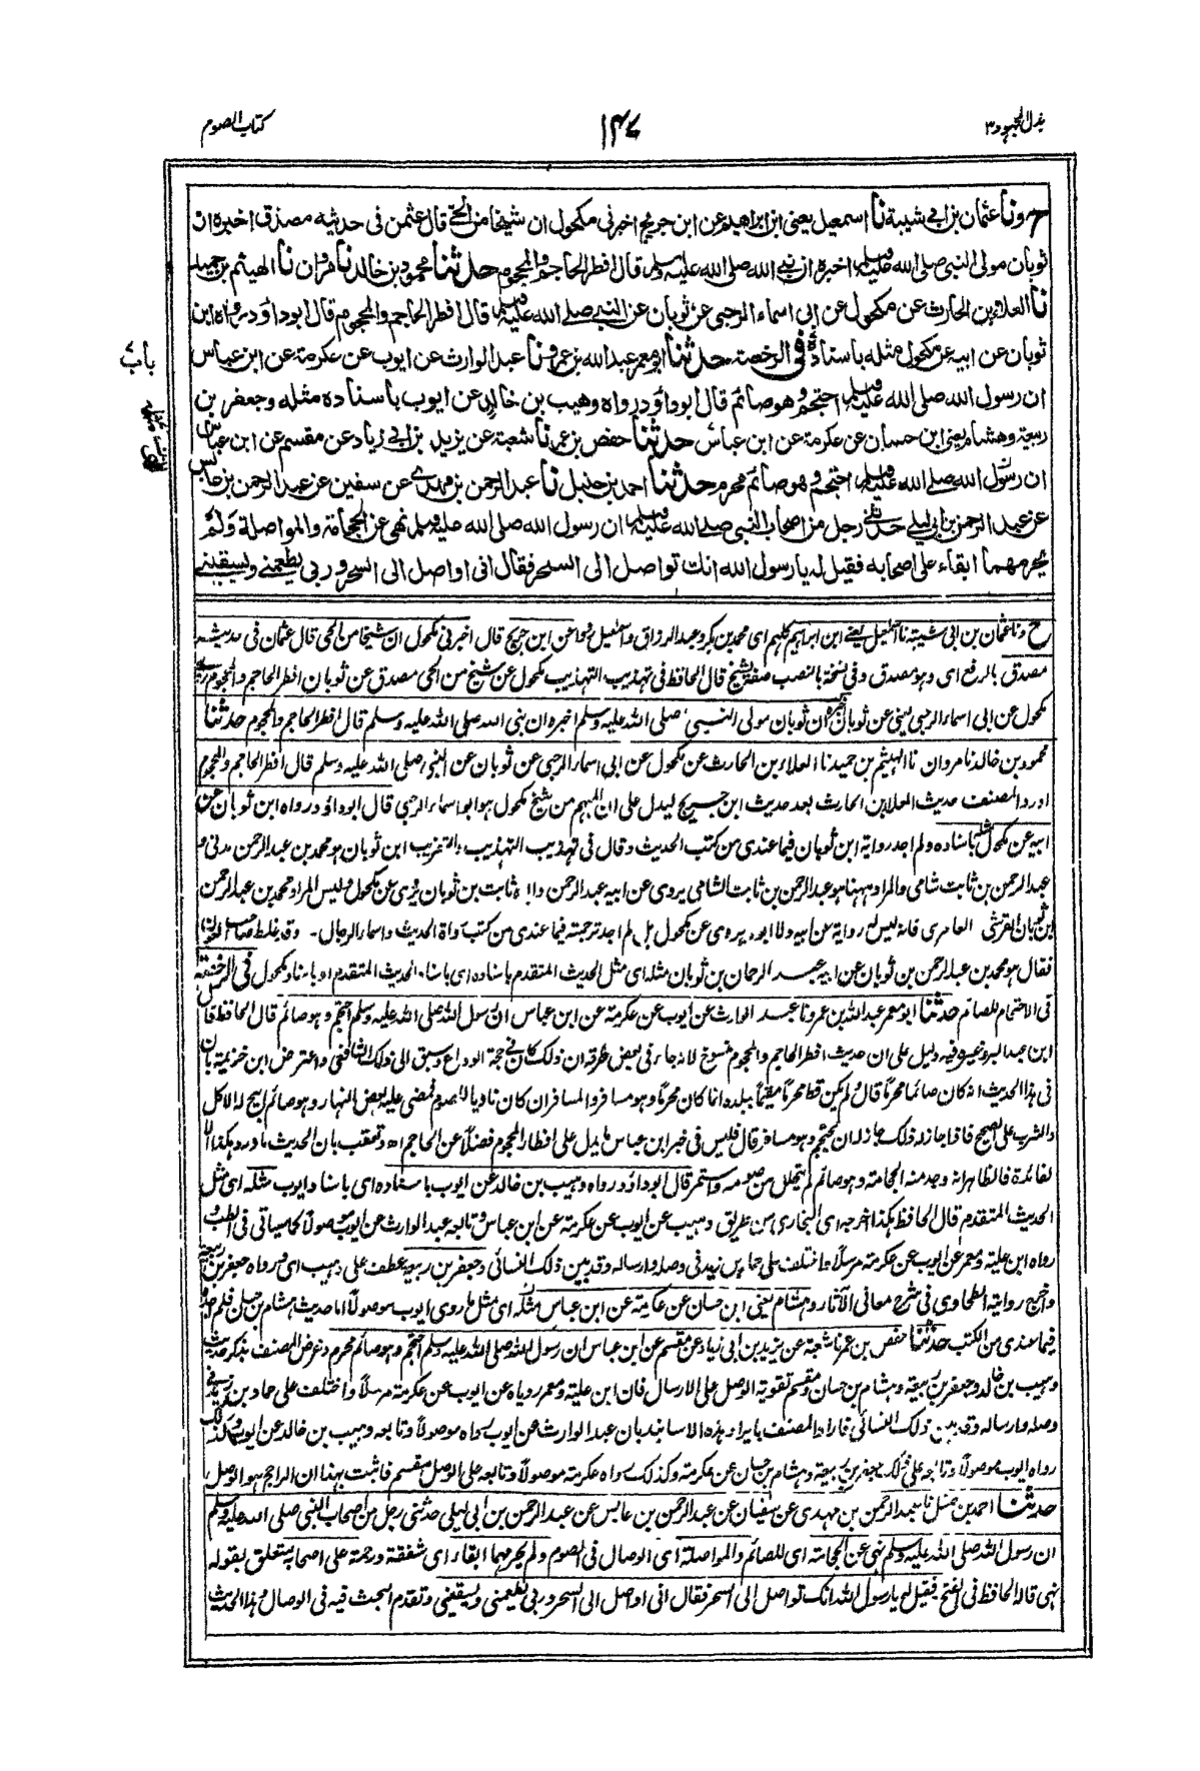 بذل المجهود ٣
١٤٧
كتاب الصوم
ح ونا عثمان بن ابي شيبة نا اسمعيل يعنى ابن ابراهيم عن ابن جريج اخبرنى مكحول ان شيخا من الحي قال عثمن فى حديثه مصدق اخبره ان
ثوبان مولى النبى صلى الله عليه وسلم اخبره ان نبي الله صلى الله عليه وسلم قال افطر الحاجم والمحجوم حدثنا محمود بن خالد نا مروان نا الهيثم بن حميد
نا العلاء بن الحارث عن مكحول عن ابى اسماء الرحبى عن ثوبان عن النبى صلى الله عليه وسلم قال افطر الحاجم والمحجوم قال ابوداؤد رواه ابن
ثوبان عن ابيه عن مكحول مثله باسناده فى الرخصة حدثنا ابو معمر عبد الله بن عمرو نا عبد الوارث عن ايوب عن عكرمة عن ابن عباس
باب
ان رسول الله صلى الله عليه وسلم احتجم وهو صائم قال ابوداؤد رواه وهيب بن خالد عن ايوب باسناده مثله وجعفر بن
ربيعة وهشام يعنى ابن حسان عن عكرمة عن ابن عباس حدثنا حفص بن عمر نا شعبة عن يزيد بن ابي زياد عن مقسم عن ابن عباس
ان رسول الله صلى الله عليه وسلم احتجم وهو صائم محرم حدثنا احمد بن حنبل نا عبد الرحمن بن مهدي عن سفين عن عبد الرحمن بن عابس
عن عبد الرحمن بن ابي ليلى حدثنى رجل من اصحاب النبى صلى الله عليه وسلم ان رسول الله صلى الله عليه وسلم نهى عن الحجامة والمواصلة ولم
يحرمهما ابقاء على اصحابه فقيل له يا رسول الله انك تواصل الى السحر فقال انى اواصل الى السحر وربى يطعمنى ويسقينى
ح ونا عثمان بن ابى شيبة نا اسمعيل يعنى ابن ابراهيم كلهم اى محمد بن بكر وعبد الرزاق واسمعيل عن ابن جريج قال اخبرنى مكحول ان شيخا من الحى قال عثمان فى حديثه
مصدق بالرفع اى وهو مصدق وفى نسخة بالنصب صفة لشيخ قال الحافظ فى تهذيب التهذيب مكحول عن شيخ من الحى مصدق عن ثوبان افطر الحاجم والمحجوم
مكحول عن ابى اسماء الرحبى يعنى عن ثوبان اخبره ان ثوبان مولى النبى صلى الله عليه وسلم اخبره ان نبى الله صلى الله عليه وسلم قال افطر الحاجم والمحجوم حدثنا
محمود بن خالد نا مروان نا الهيثم بن حميد نا العلاء بن الحارث عن مكحول عن ابى اسماء الرحبى عن ثوبان عن النبى صلى الله عليه وسلم قال افطر الحاجم والمحجوم
اورد المصنف حديث العلاء بن الحارث بعد حديث ابن جريج ليدل على ان المبهم من شيخ مكحول هو ابو اسماء الرحبى قال ابوداؤد رواه ابن ثوبان عن
ابيه عن مكحول مثله باسناده ولم اجد رواية ابن ثوبان فيما عندى من كتب الحديث وقال فى تهذيب التهذيب والتقريب ابن ثوبان هو محمد بن عبد الرحمن مدنى و
عبد الرحمن بن ثابت شامى والمراد ههنا هو عبد الرحمن بن ثابت الشامى يروى عن ابيه عبد الرحمن وابوه ثابت بن ثوبان يروى عن مكحول وليس المراد محمد بن عبد الرحمن
ابن ثوبان القرشى العامرى فانه ليس له رواية عن ابيه ولا ابوه يروى عن مكحول بل لم اجد ترجمته فيما عندى من كتب رواة الحديث واسماء الرجال - وقد غلط صاحب العون
فقال هو محمد بن عبد الرحمن بن ثوبان عن ابيه عبد الرحمان بن ثوبان مثله اى مثل الحديث المتقدم باسناده اى باسناد الحديث المتقدم او باسناد مكحول فى الرخصة
فى الاحتجام للصائم حدثنا ابو معمر عبد الله بن عمرو نا عبد الوارث عن ايوب عن عكرمة عن ابن عباس ان رسول الله صلى الله عليه وسلم احتجم وهو صائم قال الحافظ قال
ابن عبد البر وغيره فيه دليل على ان حديث افطر الحاجم والمحجوم منسوخ لانه جاء فى بعض طرقه ان ذلك كان فى حجة الوداع وسبق الى ذلك الشافعى واعترض ابن خزيمة بان
فى هذا الحديث انه كان صائما محرما قال ولم يكن قط محرما مقيما ببلده انما كان محرما وهو مسافر والمسافر ان كان ناويا للصوم فمضى عليه بعض النهار وهو صائم ابيح له الاكل
والشرب على الصحيح فاذا جاز له ذلك جاز له ان يحتجم وهو مسافر قال فليس فى خبر ابن عباس ما يدل على افطار المحجوم فضلا عن الحاجم اه وتعقب بان الحديث ما ورد هكذا الا
لفائدة فالظاهر انه وجد منه الحجامة وهو صائم لم يتحلل من صومه واستمر قال ابوداؤد رواه وهيب بن خالد عن ايوب باسناده اى باسناد ايوب مثله اى مثل
الحديث المتقدم قال الحافظ هكذا اخرجه اى البخارى من طريق وهيب عن ايوب عن عكرمة عن ابن عباس وتابعه عبد الوارث عن ايوب موصولا كما سياتى فى الطب و
رواه ابن علية ومعمر عن ايوب عن عكرمة مرسلا واختلف على حماد بن زيد فى وصله وارساله وقد بين ذلك النسائى وجعفر بن ربيعة عطف على وهيب اى ورواه جعفر بن ربيعة
واخرج روايته الطحاوى فى شرح معانى الآثار وهشام يعنى ابن حسان عن عكرمة عن ابن عباس مثله اى مثل ما روى ايوب موصولا اما حديث هشام بن حسان فلم اجده
فيما عندى من الكتب حدثنا حفص بن عمر نا شعبة عن يزيد بن ابى زياد عن مقسم عن ابن عباس ان رسول الله صلى الله عليه وسلم احتجم وهو صائم محرم وغرض المصنف بذكر حديث
وهيب بن خالد وجعفر بن ربيعة وهشام بن حسان ومقسم تقوية الوصل على الارسال فان ابن علية ومعمر روياه عن ايوب عن عكرمة مرسلا واختلف على حماد بن زيد فى
وصله وارساله وقد بين ذلك النسائى فاراد المصنف بايراد هذه الاسانيد بان عبد الوارث عن ايوب رواه موصولا وتابعه وهيب بن خالد عن ايوب وكذلك
رواه ايوب موصولا وتابعه على ذلك جعفر بن ربيعة وهشام بن حسان عن عكرمة وكذلك رواه عكرمة موصولا وتابعه على الوصل مقسم فاثبت بهذا ان الراجح هو الوصل
حدثنا احمد بن حنبل نا عبد الرحمن بن مهدى عن سفيان عن عبد الرحمن بن عابس عن عبد الرحمن بن ابى ليلى حدثنى رجل من اصحاب النبى صلى الله عليه وسلم
ان رسول الله صلى الله عليه وسلم نهى عن الحجامة اى للصائم والمواصلة اى الوصال فى الصوم ولم يحرمهما ابقاء اى شفقة ورحمة على اصحابه يتعلق بقوله
نهى قاله الحافظ فى الفتح فقيل له يا رسول الله انك تواصل الى السحر فقال انى اواصل الى السحر وربى يطعمنى ويسقينى وتقدم البحث فيه فى الوصال وهذا الحديث